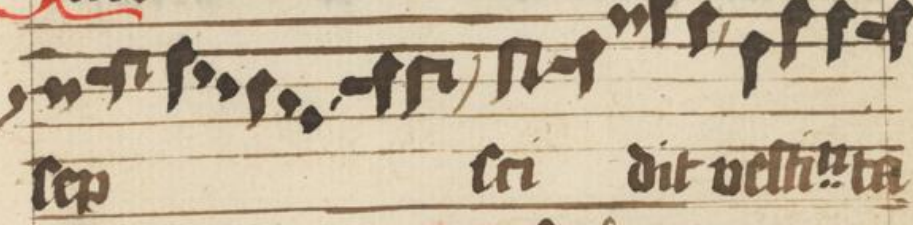 sep sci dit vesti ta